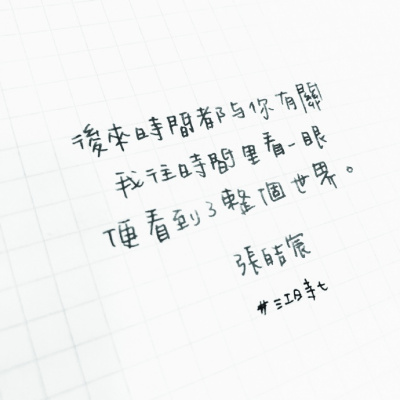 後來時間都与你有關
我往時間里看一眼
便看到了整個世界。
張皓宸